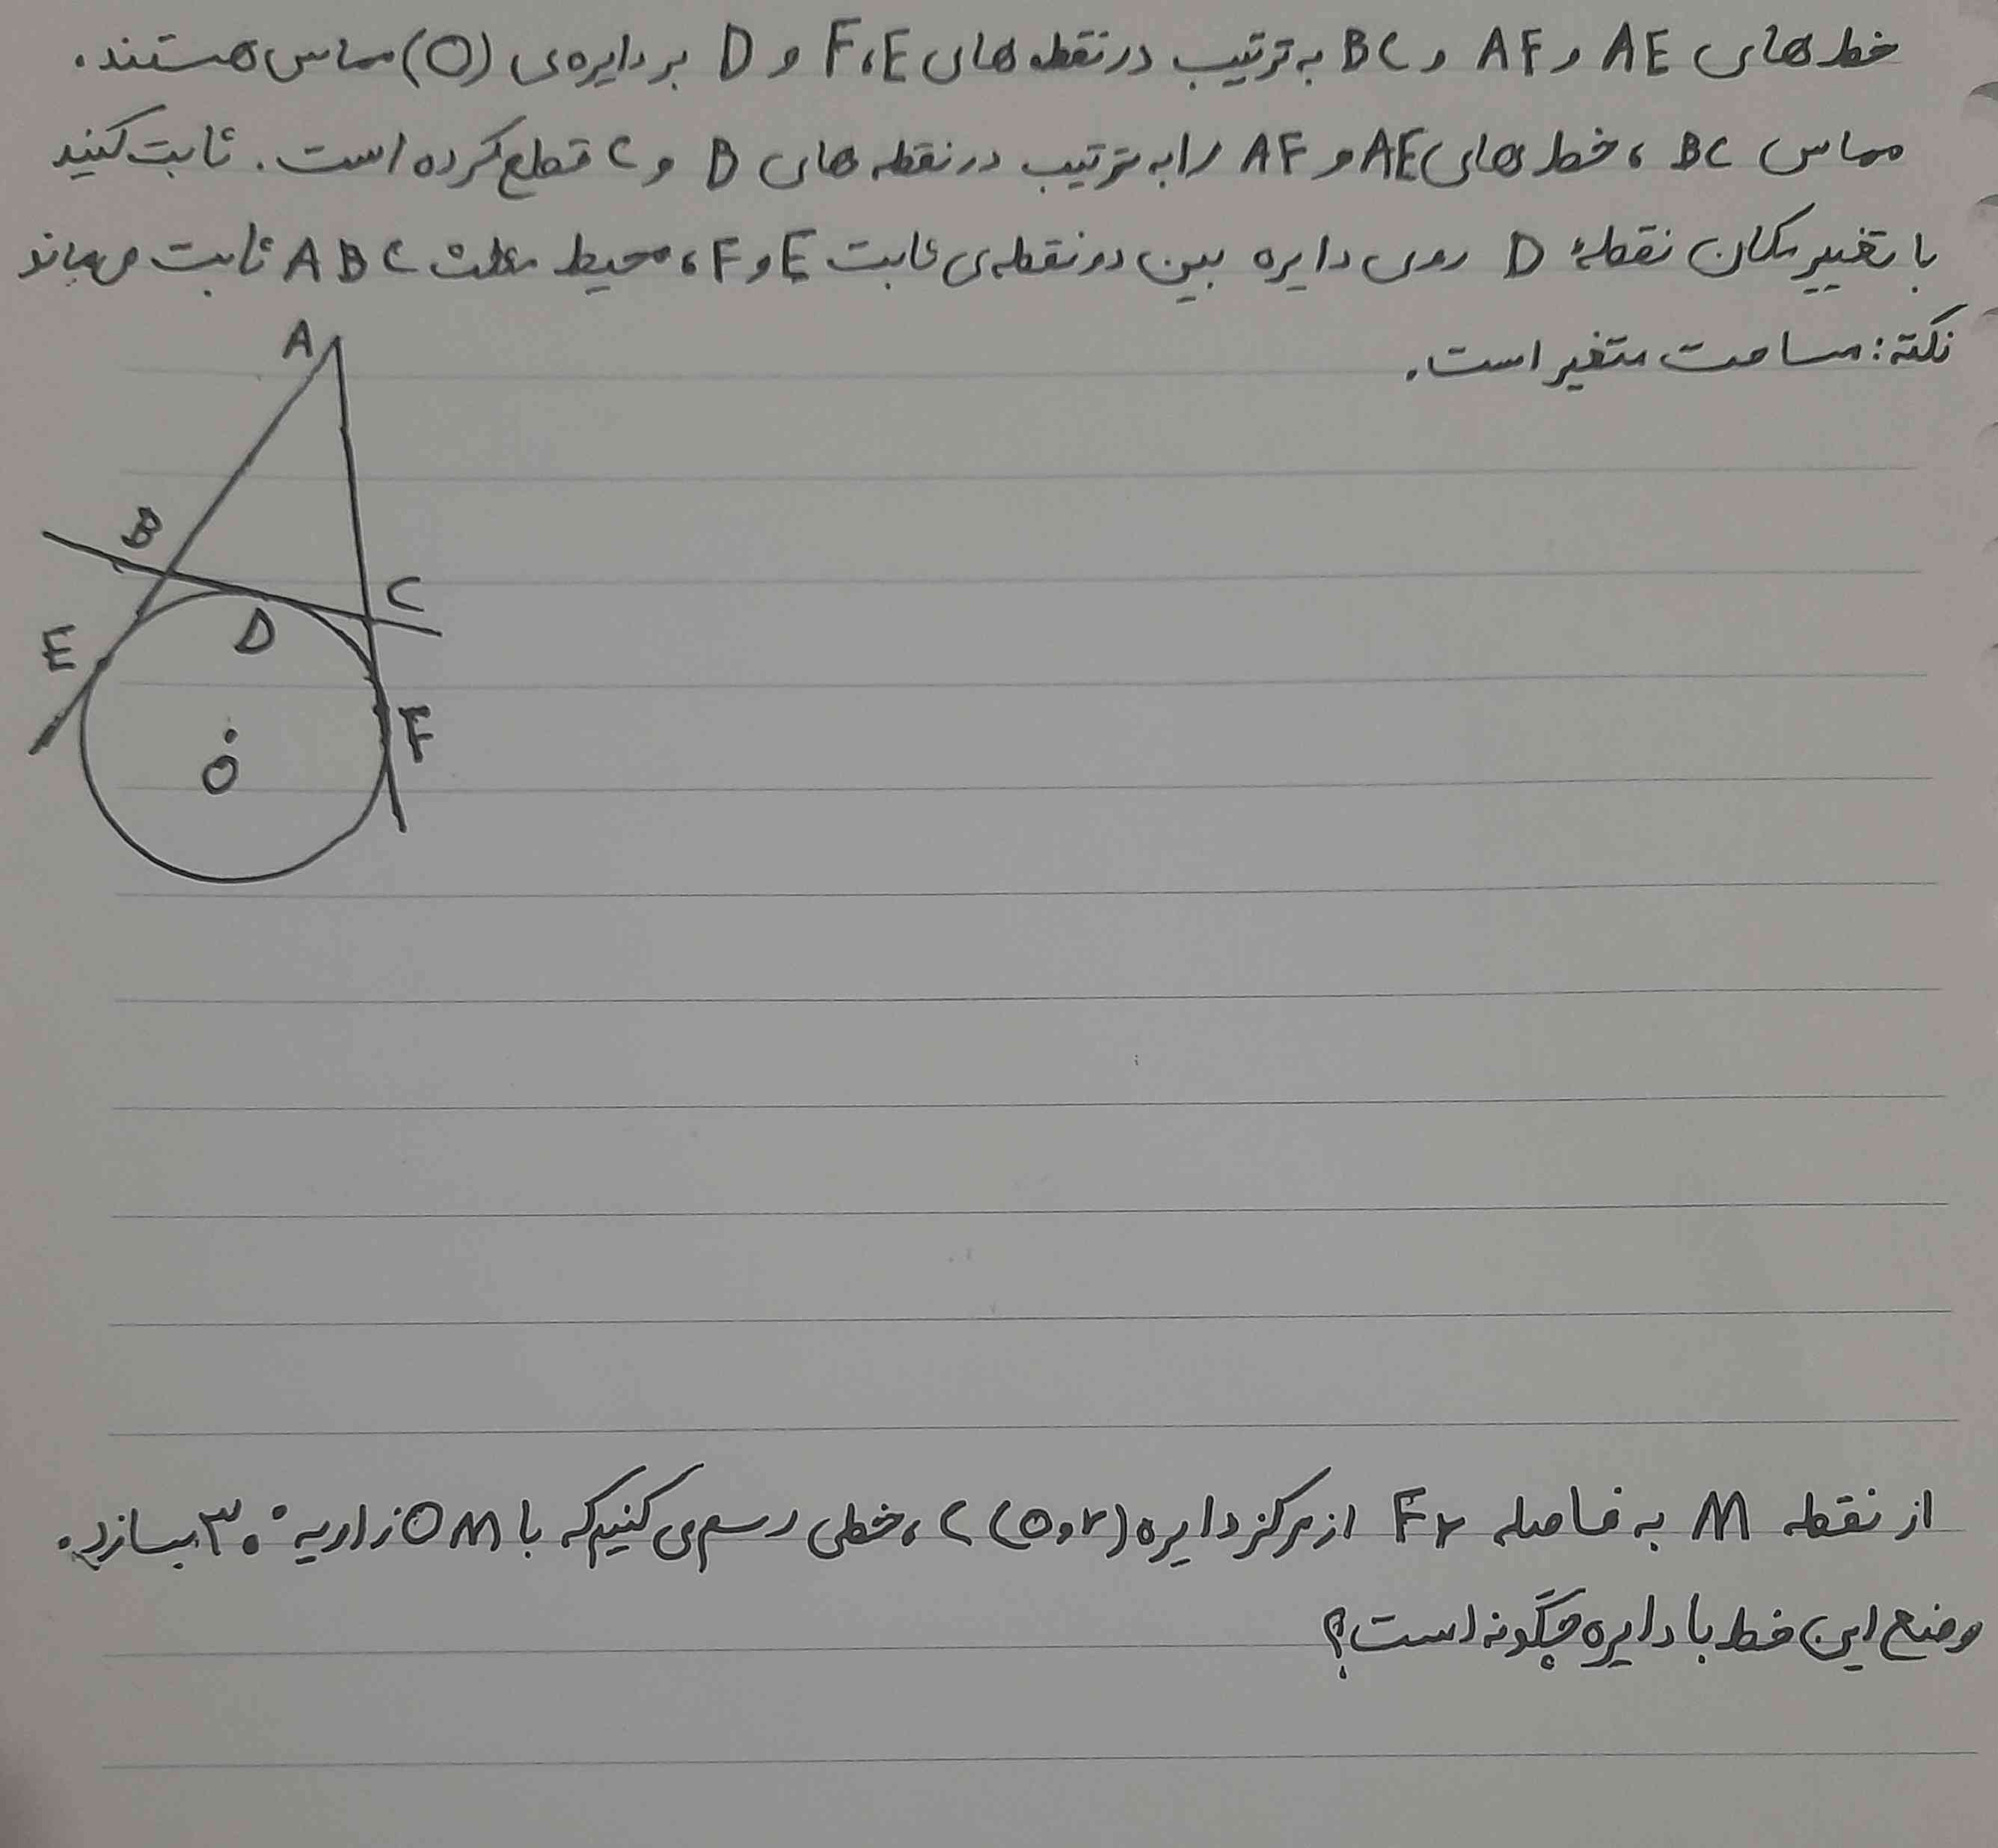 خط های AE و AF و BC به ترتیب در نقطه های E، F و D بر دایره ی (O) مماس هستند.
مماس BC، خط های AE و AF را به ترتیب در نقطه های B و C قطع کرده است. ثابت کنید
با تغییر مکان نقطهٔ D روی دایره بین دو نقطه ی ثابت E و F، محیط مثلث ABC ثابت می ماند
نکته: مساحت متغیر است.
A
B
C
D
E
F
O
از نقطه M به فاصله از مرکز دایره C(O,r)، خطی رسم می کنیم که با OM زاویه ۳۰° بسازد.
وضع این خط با دایره چگونه است؟